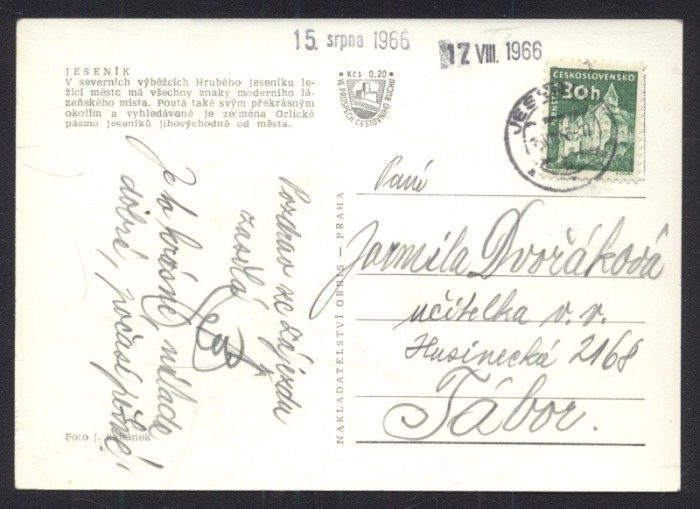 15. srpna 1966
17 VIII. 1966
JESENÍK
V severních výběžcích Hrubého Jeseníku le-
žící město má všechny znaky moderního lá-
zeňského místa. Poutá také svým překrásným
okolím a vyhledávané je zejména Orlické
pásmo Jeseníků jihovýchodně od města.
Kčs 0,20
VE PROSPĚCH CESTOVNÍHO RUCHU
ČESKOSLOVENSKO
30h
Pozdrav ze zájezdu
zasílá
Je to krásné, nálada
dobrá, počasí pěkné!
NAKLADATELSTVÍ ORBIS — PRAHA
Paní
Jarmila Dvořáková
učitelka v. v.
Husinecká 2168
Tábor.
Foto J.